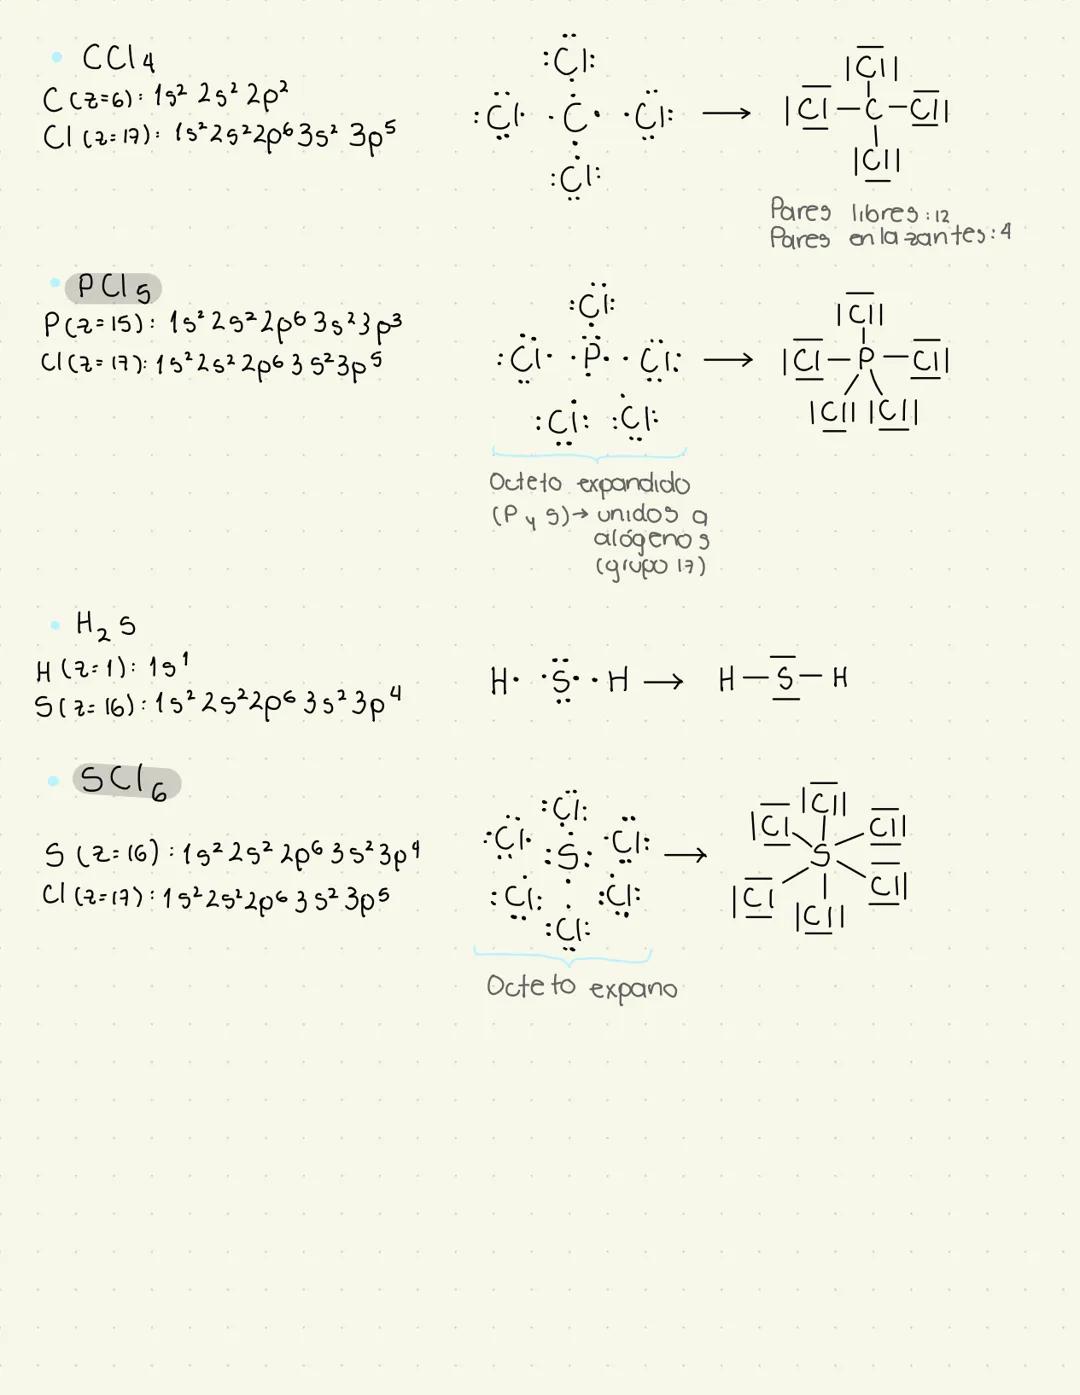 • CCl4
C (z=6): 1s² 2s² 2p²
Cl (z=17): 1s² 2s² 2p⁶ 3s² 3p⁵
:Cl:
:Cl· ·C· ·Cl: → |Cl-C-Cl|
:Cl:
|Cl|
|Cl|
Pares libres: 12
Pares enlazantes: 4
• PCl5
P (z=15): 1s² 2s² 2p⁶ 3s² 3p³
Cl (z=17): 1s² 2s² 2p⁶ 3s² 3p⁵
:Cl:
:Cl· ·P· ·Cl: → |Cl-P-Cl|
:Cl: :Cl:
|Cl|
|Cl| |Cl|
Octeto expandido
(P y S) → unidos a
alógenos
(grupo 17)
• H₂S
H (z=1): 1s¹
S (z=16): 1s² 2s² 2p⁶ 3s² 3p⁴
H· ·S· ·H → H-S-H
• SCl6
S (z=16): 1s² 2s² 2p⁶ 3s² 3p⁴
Cl (z=17): 1s² 2s² 2p⁶ 3s² 3p⁵
:Cl:
:Cl· :S: ·Cl: →
:Cl: :Cl:
:Cl:
|Cl|
|Cl Cl|
S
|Cl Cl|
|Cl|
Octeto expano